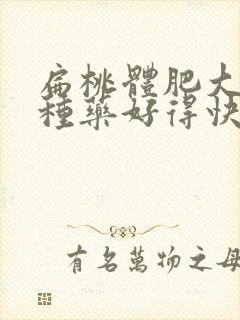 扁桃體肥大
種藥好得快
有名萬物之母